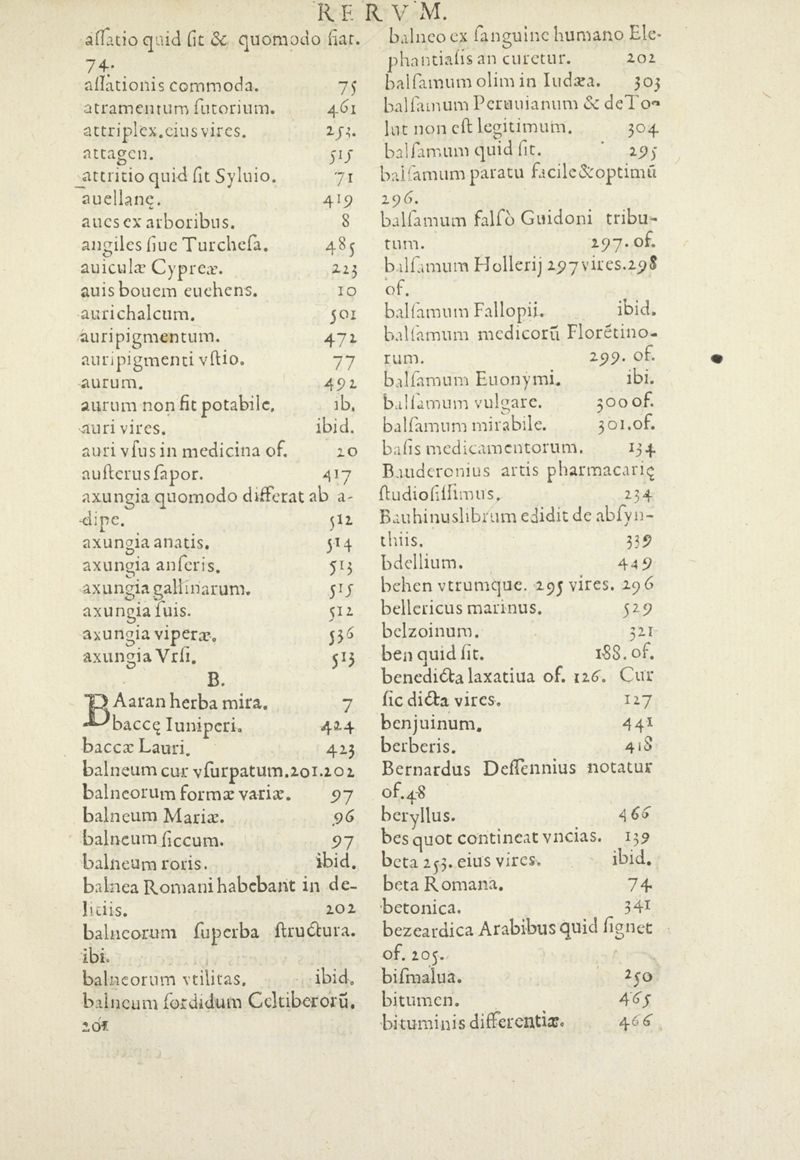 RERVM.
assatio quid sit & quomodo fiat.
74.
assationis commoda. 75
atramentum sutorium. 461
attriplex.eius vires. 253.
attagen. 515
attritio quid sit Syluio. 71
auellanę. 419
aues ex arboribus. 8
augiles siue Turchesa. 485
auiculæ Cypreæ. 223
auis bouem euehens. 10
aurichalcum. 501
auripigmentum. 472
auripigmenti vstio. 77
aurum. 492
aurum non fit potabile, ib.
auri vires. ibid.
auri vsus in medicina of. 20
austerus sapor. 417
axungia quomodo differat ab a-
dipe. 512
axungia anatis. 514
axungia anseris. 513
axungia gallinarum. 515
axungia suis. 512
axungia viperæ. 536
axungia Vrsi. 513
B.
BAaran herba mira. 7
baccę Iuniperi. 424
baccæ Lauri. 423
balneum cur vsurpatum.201.202
balneorum formæ variæ. 97
balneum Mariæ. 96
balneum siccum. 97
balneum roris. ibid.
balnea Romani habebant in de-
litiis. 202
balneorum superba structura.
ibi.
balneorum vtilitas, ibid.
balneum sordidum Celtiberorū.
201
balneo ex sanguine humano Ele-
phantiasis an curetur. 202
balsamum olim in Iudæa. 303
balsamum Peruuianum & de To-
lut non est legitimum. 304
balsamum quid sit. 295
balsamum paratu facile & optimū
296.
balsamum falsò Guidoni tribu-
tum. 297. of.
balsamum Hollerij 297 vires.298
of.
balsamum Fallopij. ibid.
balsamum medicorū Florētino-
rum. 299. of.
balsamum Euonymi. ibi.
balsamum vulgare. 300 of.
balsamum mirabile. 301.of.
basis medicamentorum. 134
Bauderonius artis pharmacarię
studiosissimus. 234
Bauhinus librum edidit de absyn-
thiis. 339
bdellium. 449
behen vtrumque. 295 vires. 296
bellericus marinus. 529
belzoinum. 321
ben quid sit. 188. of.
benedicta laxatiua of. 126. Cur
sic dicta vires. 127
benjuinum. 441
berberis. 418
Bernardus Dessennius notatur
of.48
beryllus. 466
bes quot contineat vncias. 139
beta 253. eius vires. ibid.
beta Romana. 74
betonica. 341
bezeardica Arabibus quid signet
of. 205.
bismalua. 250
bitumen. 465
bituminis differentiæ. 466